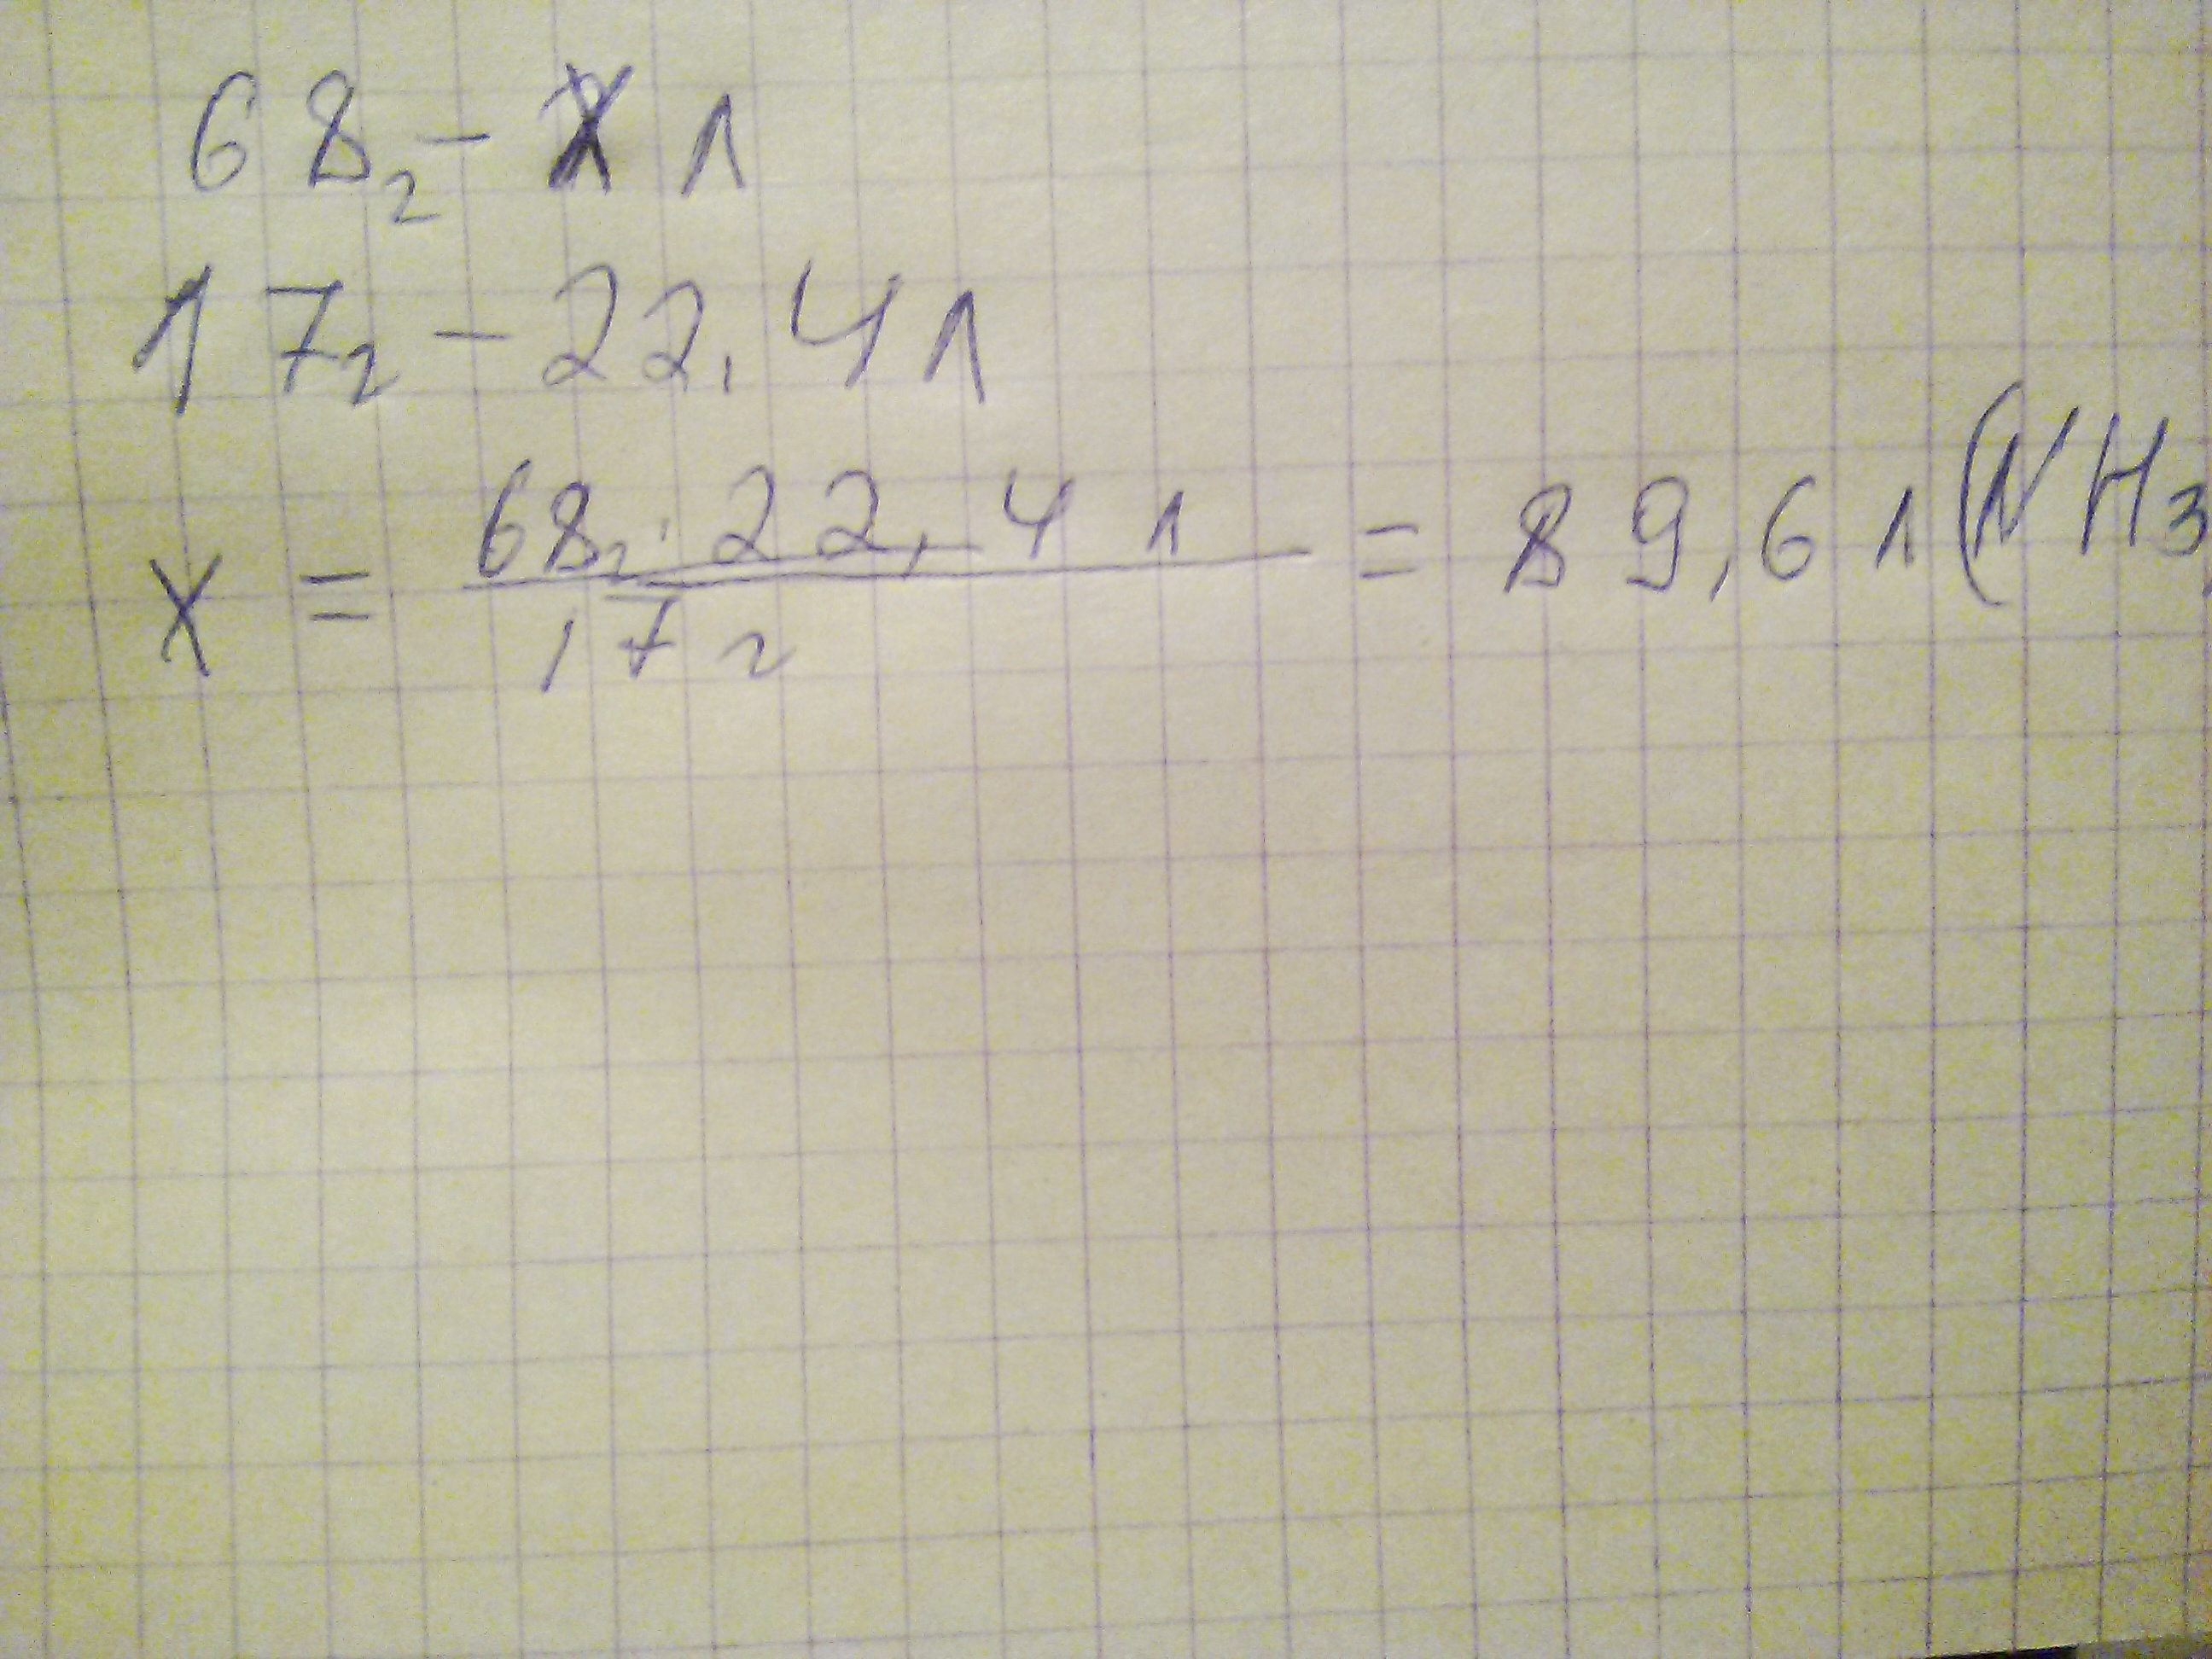 68г - х л
17г - 22,4 л
х = 68г · 22,4 л / 17 г = 89,6 л (NH₃)